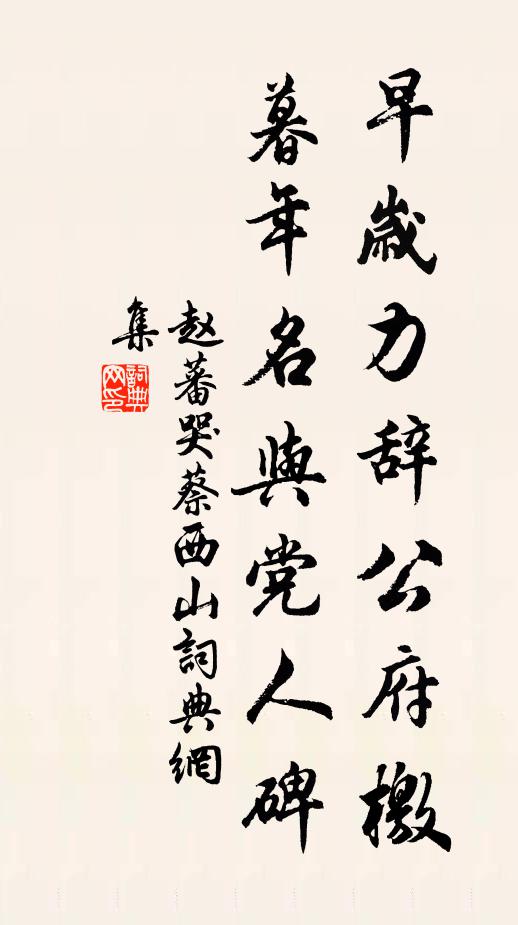 早歲力辞公府檄
暮年名與党人碑
赵蕃哭蔡西山詞典網
集
詞典网印